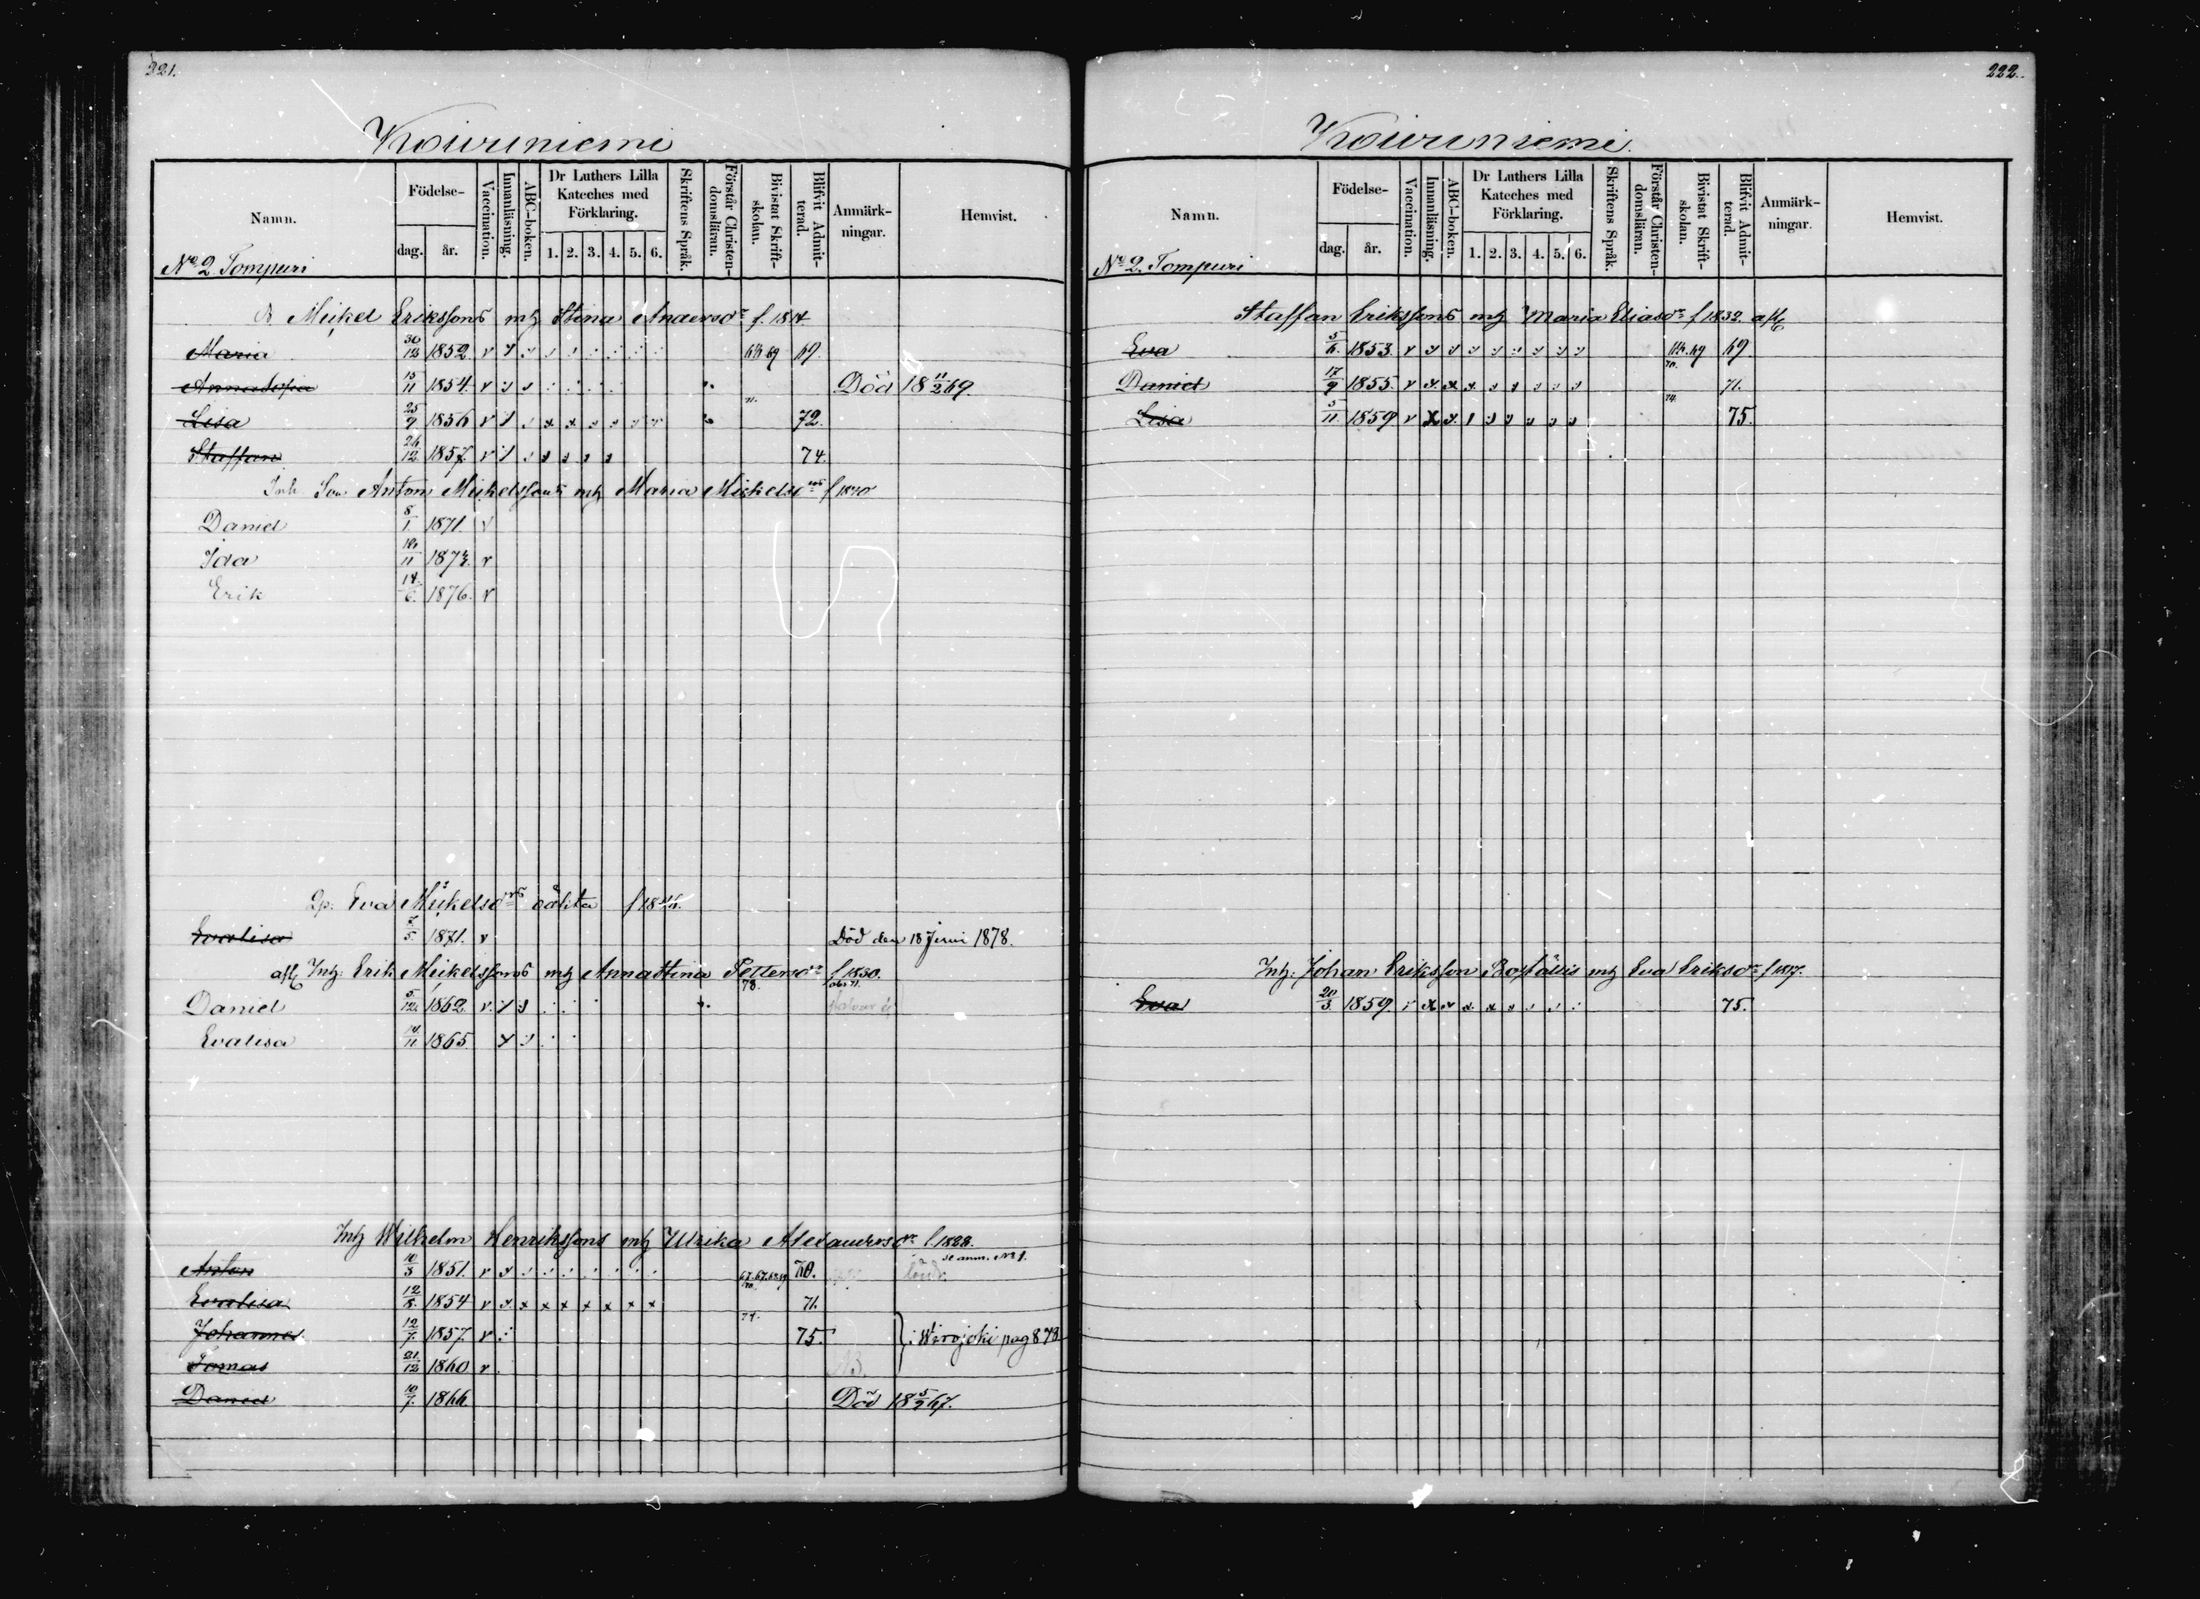 221.
Koiruniemi
Namn.
Födelse-
dag. år.
Vaccination.
Innanläsning.
ABC-boken.
Dr Luthers Lilla
Kateches med
Förklaring.
1. 2. 3. 4. 5. 6.
Skriftens Språk.
Förstår Christen-
domsläran.
Bivistat Skrift-
skolan.
Blifvit Admit-
terad.
Anmärk-
ningar.
Hemvist.
No 2 Tompuri
Mickel Erikssons mh Stina Andersdr f. 1814
Maria 30/12 1852 v 69 69.
Annasofia 15/11 1854. v Död 18 11/2 69.
Lisa 25/9 1856 v 71. 72.
Staffan 26/12 1857. v 74.
Son Anton Mickelssons mh Maria Mickelsdr f 1840
Daniel 8/1 1871. v
Ida 16/11 1873. v
Erik 14/6. 1876. v
Eva Mickelsdrs oäkta f 18
Evalisa 7/5. 1871. v Död den 18 Juni 1878.
Inh: Erik Mickelssons mh Annastina Pettersdr f 1830.
Daniel 5/12. 1862. v. 78.
Evalisa 14/11 1865.
Inh Wilhelm Henrikssons mh Ulrika Alexandersdr f 1828.
se anm. No 1.
Anton 10/3 1851. v 67. 67. 68. 69 70.
Evalisa 12/8. 1854 v x x x x x x x 71.
Johannes 12/7. 1857. v 74. 75. Wirojoki pag 878
Tomas 21/12 1860 v NB.
Daniel 10/7. 1866. Död 18 5/3 67.
222.
Koiruniemi.
Namn.
Födelse-
dag. år.
Vaccination.
Innanläsning.
ABC-boken.
Dr Luthers Lilla
Kateches med
Förklaring.
1. 2. 3. 4. 5. 6.
Skriftens Språk.
Förstår Christen-
domsläran.
Bivistat Skrift-
skolan.
Blifvit Admit-
terad.
Anmärk-
ningar.
Hemvist.
No 2. Tompuri
Staffan Erikssons mh Maria Eliasdr f 1832.
Eva 5/6. 1853. v 69 69.
Daniel 17/9 1855. v 70. 71.
Lisa 5/11. 1859 v 74. 75.
Inh: Johan Eriksson mh Eva Eriksdr f 1817.
Eva 20/3. 1859. 75.